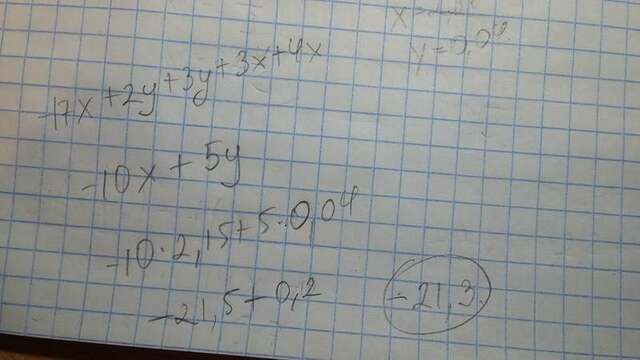 y=0,04
-17x+2y+3y+3x+4x
-10x+5y
-10·2,15+5·0,04
-21,5+0,2 -21,3